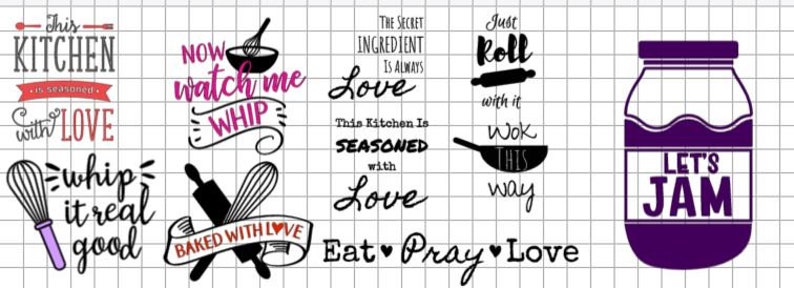 This
KITCHEN
is seasoned
with LOVE
NOW
watch me
WHIP
THE SECRET
INGREDIENT
IS ALWAYS
Love
This Kitchen Is
SEASONED
with
Love
Just
Roll
with it
Wok
THIS
way
LET'S
JAM
whip
it real
good
BAKED WITH LOVE
Eat ♥ Pray ♥ Love